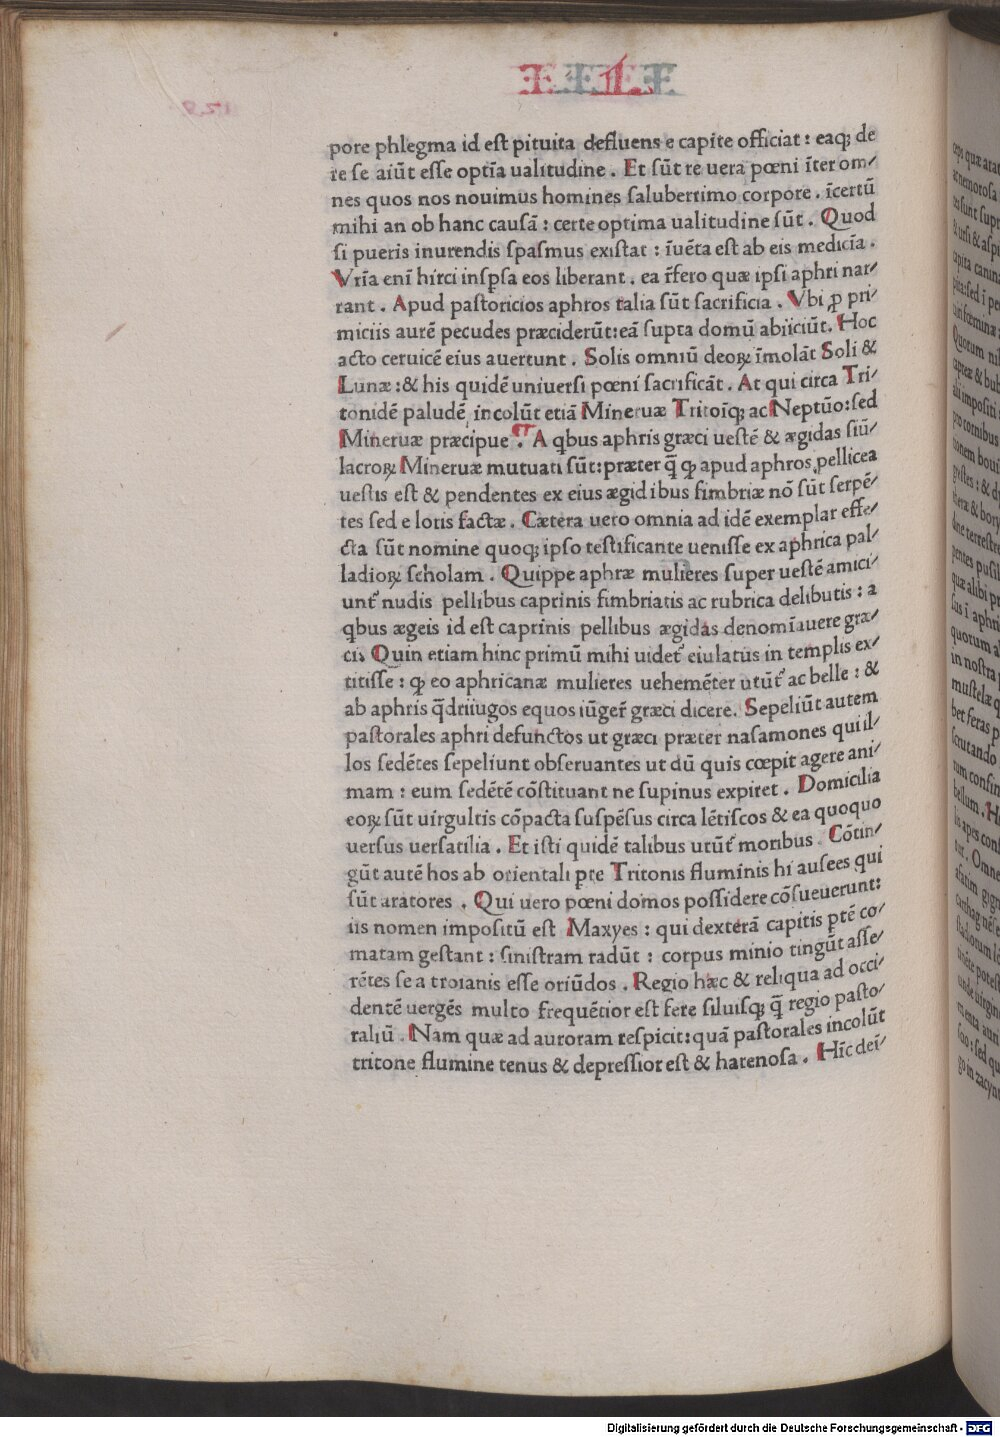 pore phlegma id eſt pituita defluens e capite officiat : eaq; de
re ſe aiūt eſſe optīa ualitudine . Et ſūt re uera pœni īter om⸗
nes quos nos nouimus homines ſaluberrimo corpore . īcertū
mihi an ob hanc cauſā : certe optima ualitudine ſūt . Quod
ſi pueris inurendis ſpaſmus exiſtat : īuēta eſt ab eis medicīa .
Vrīa enī hirci inſpſa eos liberant . ea r̄fero quæ ipſi aphri nar⸗
rant . Apud paſtoricios aphros talia ſūt ſacrificia . Vbi ꝓ pri⸗
miciis aurē pecudes præciderūt: eā ſupra domū abiiciūt. Hoc
acto ceruicē eius auertunt . Solis omniū deoꝝ īmolāt Soli &
Lunæ : & his quidē uniuerſi pœni ſacrificāt . At qui circa Tri⸗
tonidē paludē incolūt etiā Mineruæ Tritoīq; ac Neptūo: ſed
Mineruæ præcipue . A qbus aphris græci ueſtē & ægidas ſiū⸗
lacroꝝ Mineruæ mutuati ſūt: præter q̄ ꝙ apud aphros pellicea
ueſtis eſt & pendentes ex eius ægidibus fimbriæ nō ſūt ſerpē⸗
tes ſed e loris factæ . Cætera uero omnia ad idē exemplar effe⸗
cta ſūt nomine quoq; ipſo teſtificante ueniſſe ex aphrica pal⸗
ladioꝝ ſcholam . Quippe aphræ mulieres ſuper ueſtē amici⸗
unt᷑ nudis pellibus caprinis fimbriatis ac rubrica delibutis : a
qbus ægeis id eſt caprinis pellibus ægidas denomīauere græ⸗
ci. Quin etiam hinc primū mihi uidet᷑ eiulatus in templis ex⸗
titiſſe : ꝙ eo aphricanæ mulieres uehemēter utūt᷑ ac belle : &
ab aphris q̄driiugos equos iūger̄ græci dicere. Sepeliūt autem
paſtorales aphri defunctos ut græci præter naſamones qui il⸗
los ſedētes ſepeliunt obſeruantes ut dū quis cœpit agere ani⸗
mam : eum ſedētē cōſtituant ne ſupinus expiret . Domicilia
eoꝝ ſūt uirgultis cōpacta ſuſpēſus circa lētiſcos & ea quoquo
uerſus uerſatilia . Et iſti quidē talibus utūt᷑ moribus . Cōtin⸗
gūt autē hos ab orientali pte Tritonis fluminis hi auſees qui
ſūt aratores . Qui uero pœni domos poſſidere cōſueuerunt:
iis nomen impoſitū eſt Maxyes : qui dexterā capitis ptē co⸗
matam geſtant : ſiniſtram radūt : corpus minio tingūt aſſe⸗
rētes ſe a troianis eſſe oriūdos . Regio hæc & reliqua ad occi⸗
dentē uergēs multo frequētior eſt fere ſiluiſq; q̄ regio paſto⸗
raliū . Nam quæ ad auroram reſpicit: quā paſtorales incolūt
tritone flumine tenus & depreſſior eſt & harenoſa . Hīc deī⸗
Digitalisierung gefördert durch die Deutsche Forschungsgemeinschaft - DFG